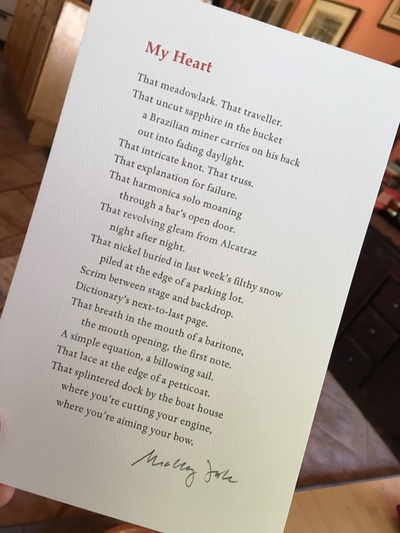 My Heart
That meadowlark. That traveller.
That uncut sapphire in the bucket
a Brazilian miner carries on his back
out into fading daylight.
That intricate knot. That truss.
That explanation for failure.
That harmonica solo moaning
through a bar's open door.
That revolving gleam from Alcatraz
night after night.
That nickel buried in last week's filthy snow
piled at the edge of a parking lot.
Scrim between stage and backdrop.
Dictionary's next-to-last page.
That breath in the mouth of a baritone,
the mouth opening, the first note.
A simple equation, a billowing sail.
That lace at the edge of a petticoat.
That splintered dock by the boat house
where you're cutting your engine,
where you're aiming your bow.
Molly